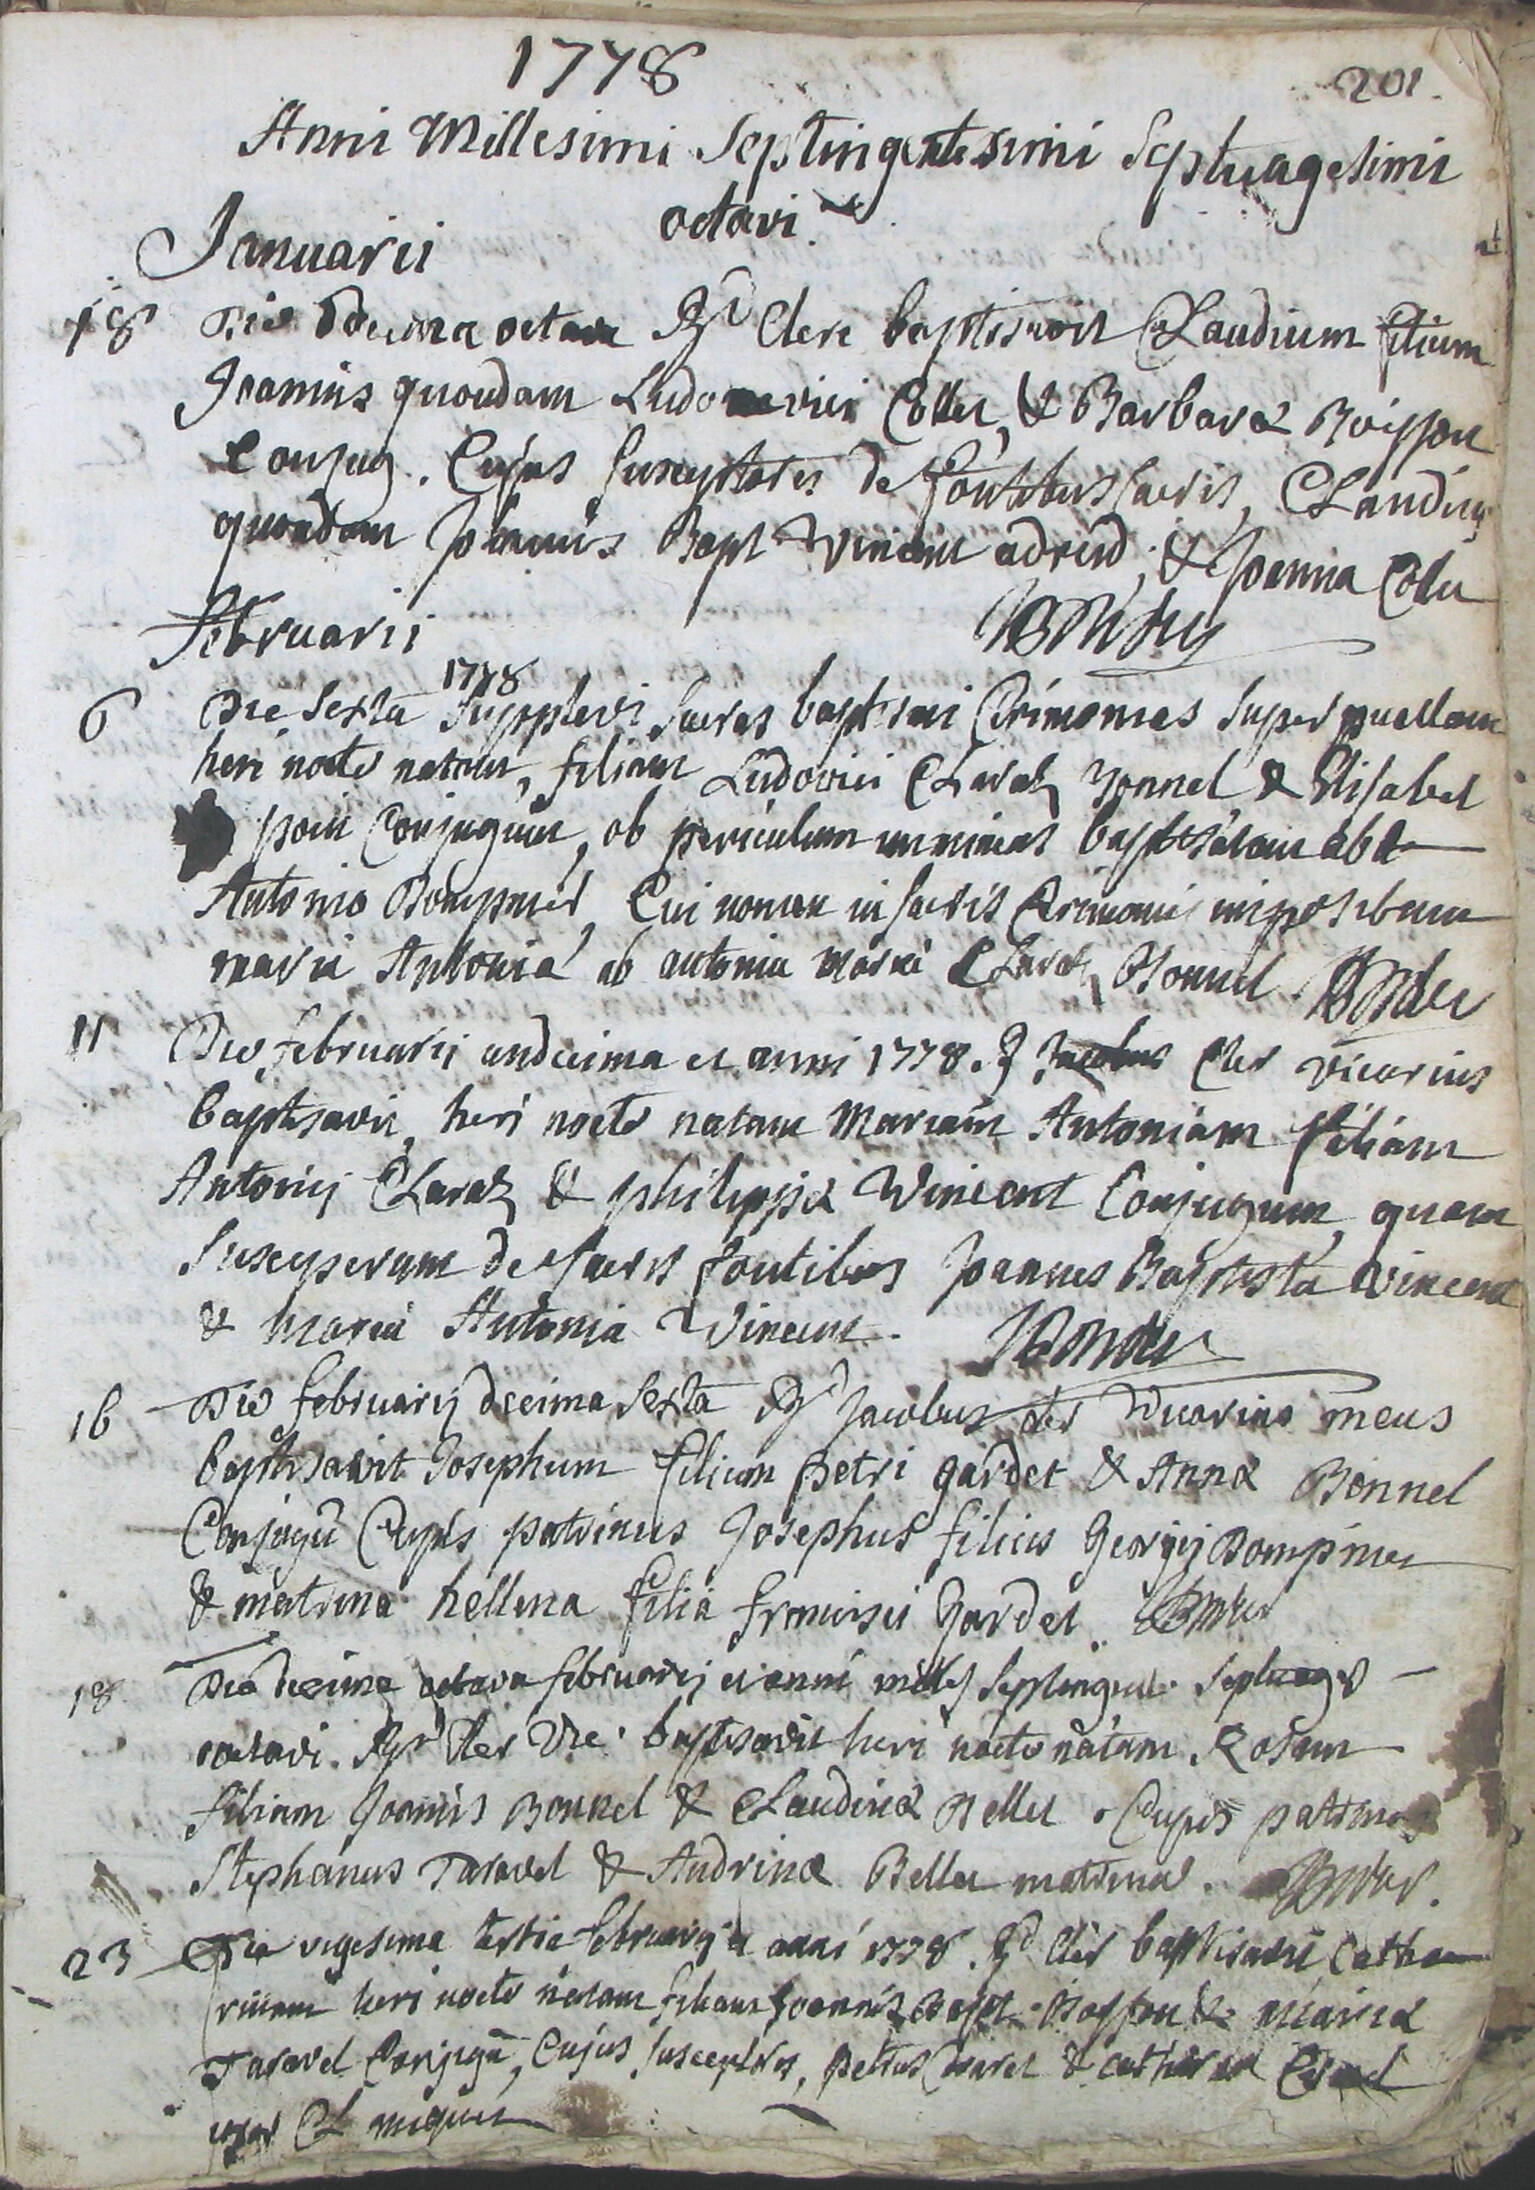 1778
201.
Anni Millesimi Septingentesimi Septuagesimi
octavi.
Januarii
18 Die decima octava Rd Clere baptisavit Claudium filium
Joannis quondam Ludovici Collet, & Barbaræ Boisson
Conjug. Cujus susceptores de fontibus sacris, Claudius
quondam Joannis Bapt Vincent & Joanna Collet
Februarii
6 Die sexta 1778 supplevi sacras baptismi Cerimonias super puellam
heri nocte natam, filiam Ludovici Claraz Bonnel & Elisabet
conjugum, ob periculum imminens baptisatam ab
Antonio Dompmer, Cui nomen in sacris Cerimoniis impositum
maria Antonia ab antonia maria Claraz Bonnel
11 Die februarij undecima et anni 1778. Rd Cler vicarius
baptisavit, heri nocte natam Mariam Antoniam filiam
Antonij Claraz & philippæ Vincent Conjugum, quam
susceperunt de sacris fontibus Joannes Baptista Vincent
& maria Antonia Vincent.
16 Die februarij decima sexta Rd Jacobus Cler Vicarius meus
baptisavit Josephum filium petri gardet & Annæ Bonnel
Conjugũ Cujus patrinus Josephus filius Georgij Dompmer
& matrina hellena filia francisci Gardet.
18 Die decima octava februarij et anni milles septingent. septuages
octavi. Rd Cler Vic. baptisavit heri nocte natam Rosam
filiam Joannis Bonnel & Claudinæ Bellet. Cujus patrinus
Stephanus Taravel & Andrina Bellet matrina.
23 Die vigesima tertia februarij et anni 1778. Rd Cler baptisavit Catha
rinam heri nocte natam filiam Joannis Bapt. Boisson & mariæ
Taravel Conjugũ, Cujus susceptores, petrus & catharina
uxor Cl